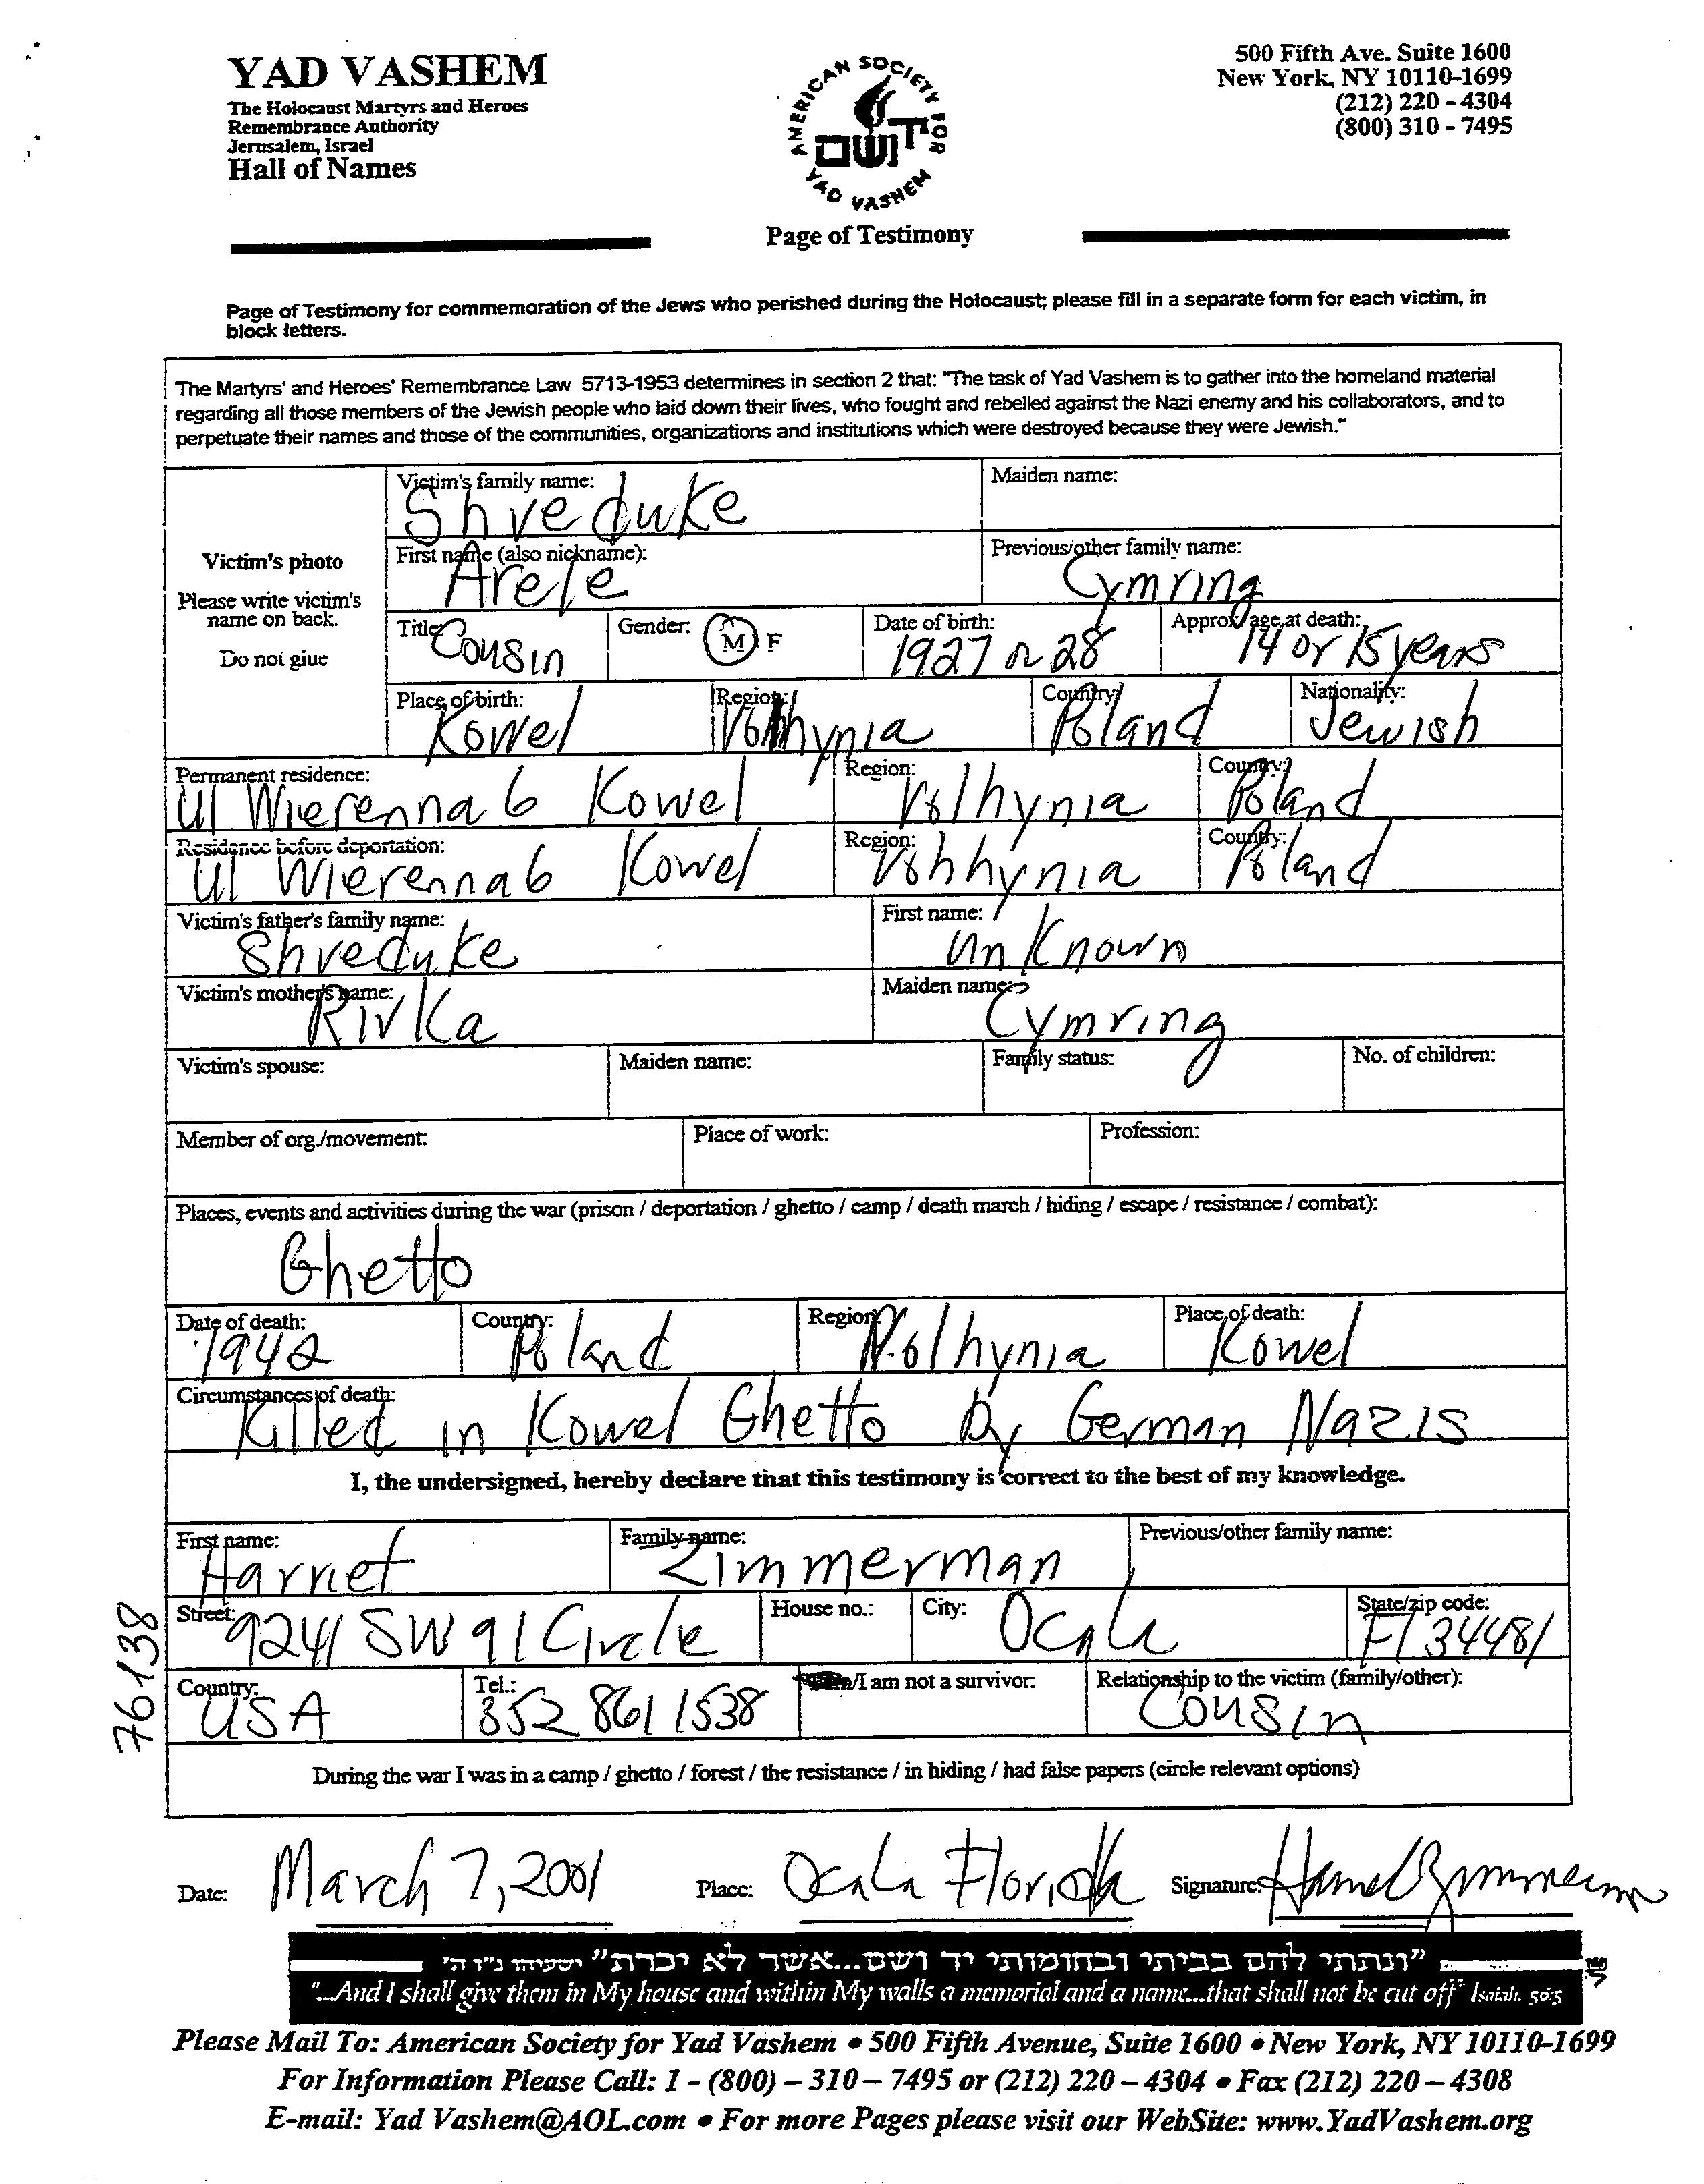 YAD VASHEM
The Holocaust Martyrs and Heroes
Remembrance Authority
Jerusalem, Israel
Hall of Names
AMERICAN SOCIETY FOR
YAD VASHEM
ושם
Page of Testimony
500 Fifth Ave. Suite 1600
New York, NY 10110-1699
(212) 220 - 4304
(800) 310 - 7495
Page of Testimony for commemoration of the Jews who perished during the Holocaust; please fill in a separate form for each victim, in
block letters.
The Martyrs' and Heroes' Remembrance Law 5713-1953 determines in section 2 that: "The task of Yad Vashem is to gather into the homeland material
regarding all those members of the Jewish people who laid down their lives, who fought and rebelled against the Nazi enemy and his collaborators, and to
perpetuate their names and those of the communities, organizations and institutions which were destroyed because they were Jewish."
Victim's photo
Please write victim's
name on back.
Do not glue
Victim's family name: Shveduke
Maiden name:
First name (also nickname): Arele
Previous/other family name: Cymring
Title: Cousin
Gender: M F
Date of birth: 1927 or 28
Approx. age at death: 14 or 15 years
Place of birth: Kowel
Region: Volhynia
Country: Poland
Nationality: Jewish
Permanent residence: Ul Wierenna 6 Kowel
Region: Volhynia
Country: Poland
Residence before deportation: Ul Wierenna 6 Kowel
Region: Vohhynia
Country: Poland
Victim's father's family name: Shveduke
First name: unknown
Victim's mother's name: Rivka
Maiden name: Cymring
Victim's spouse:
Maiden name:
Family status:
No. of children:
Member of org./movement:
Place of work:
Profession:
Places, events and activities during the war (prison / deportation / ghetto / camp / death march / hiding / escape / resistance / combat):
Ghetto
Date of death: 1942
Country: Poland
Region: Volhynia
Place of death: Kowel
Circumstances of death:
Killed in Kowel Ghetto by German Nazis
I, the undersigned, hereby declare that this testimony is correct to the best of my knowledge.
First name: Harriet
Family name: Zimmerman
Previous/other family name:
Street: 9241 SW 91 Circle
House no.:
City: Ocala
State/zip code: Fl 34481
Country: USA
Tel.: 352 861 1538
/I am not a survivor.
Relationship to the victim (family/other): Cousin
During the war I was in a camp / ghetto / forest / the resistance / in hiding / had false papers (circle relevant options)
76138
Date: March 7, 2001
Place: Ocala Florida
Signature: Harriet Zimmerman
"ונתתי להם בביתי ובחומותי יד ושם...אשר לא יכרת" ישעיהו נ"ו ה'
"...And I shall give them in My house and within My walls a memorial and a name...that shall not be cut off" Isaiah. 56:5
Please Mail To: American Society for Yad Vashem • 500 Fifth Avenue, Suite 1600 • New York, NY 10110-1699
For Information Please Call: 1 - (800) – 310 – 7495 or (212) 220 – 4304 • Fax (212) 220 – 4308
E-mail: Yad Vashem@AOL.com • For more Pages please visit our WebSite: www.YadVashem.org